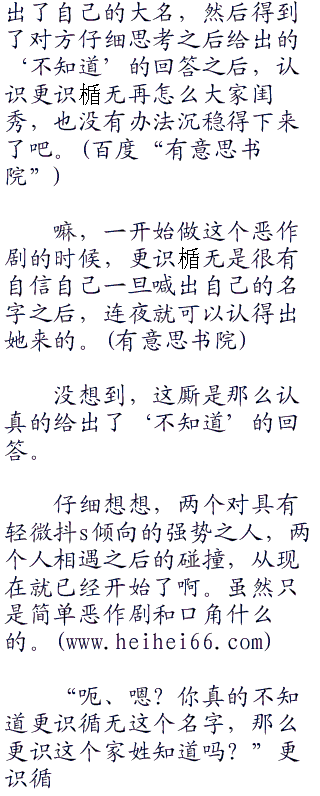 出了自己的大名，然后得到
了对方仔细思考之后给出的
‘不知道’的回答之后，认
识更识楯无再怎么大家闺
秀，也没有办法沉稳得下来
了吧。(百度“有意思书
院”)
嘛，一开始做这个恶作
剧的时候，更识楯无是很有
自信自己一旦喊出自己的名
字之后，连夜就可以认得出
她来的。(有意思书院)
没想到，这厮是那么认
真的给出了‘不知道’的回
答。
仔细想想，两个对具有
轻微抖s倾向的强势之人，两
个人相遇之后的碰撞，从现
在就已经开始了啊。虽然只
是简单恶作剧和口角什么
的。(www.heihei66.com)
“呃、嗯？你真的不知
道更识循无这个名字，那么
更识这个家姓知道吗？”更
识循